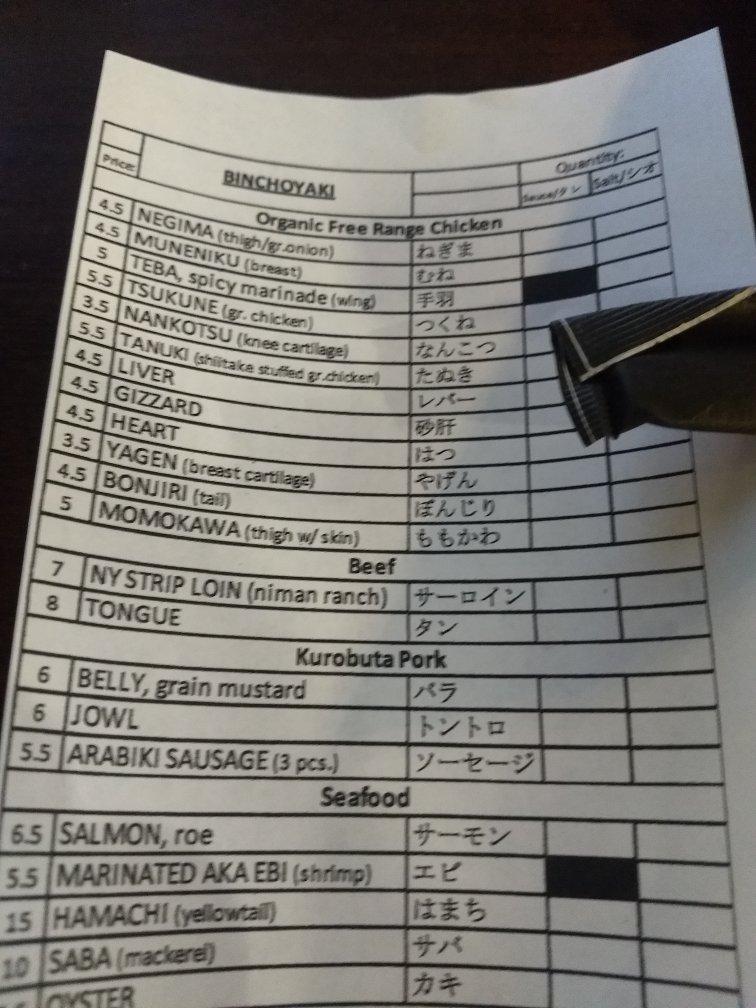 BINCHOYAKI
Quantity:
Price:
Sauce/タレ Salt/シオ
Organic Free Range Chicken
4.5 NEGIMA (thigh/gr.onion) ねぎま
4.5 MUNENIKU (breast) むね
5 TEBA, spicy marinade (wing) 手羽
5.5 TSUKUNE (gr. chicken) つくね
3.5 NANKOTSU (knee cartilage) なんこつ
5.5 TANUKI (shiitake stuffed gr.chicken) たぬき
4.5 LIVER レバー
4.5 GIZZARD 砂肝
4.5 HEART はつ
3.5 YAGEN (breast cartilage) やげん
4.5 BONJIRI (tail) ぼんじり
5 MOMOKAWA (thigh w/ skin) ももかわ
Beef
7 NY STRIP LOIN (niman ranch) サーロイン
8 TONGUE タン
Kurobuta Pork
6 BELLY, grain mustard バラ
6 JOWL トントロ
5.5 ARABIKI SAUSAGE (3 pcs.) ソーセージ
Seafood
6.5 SALMON, roe サーモン
5.5 MARINATED AKA EBI (shrimp) エビ
15 HAMACHI (yellowtail) はまち
10 SABA (mackerel) サバ
OYSTER カキ